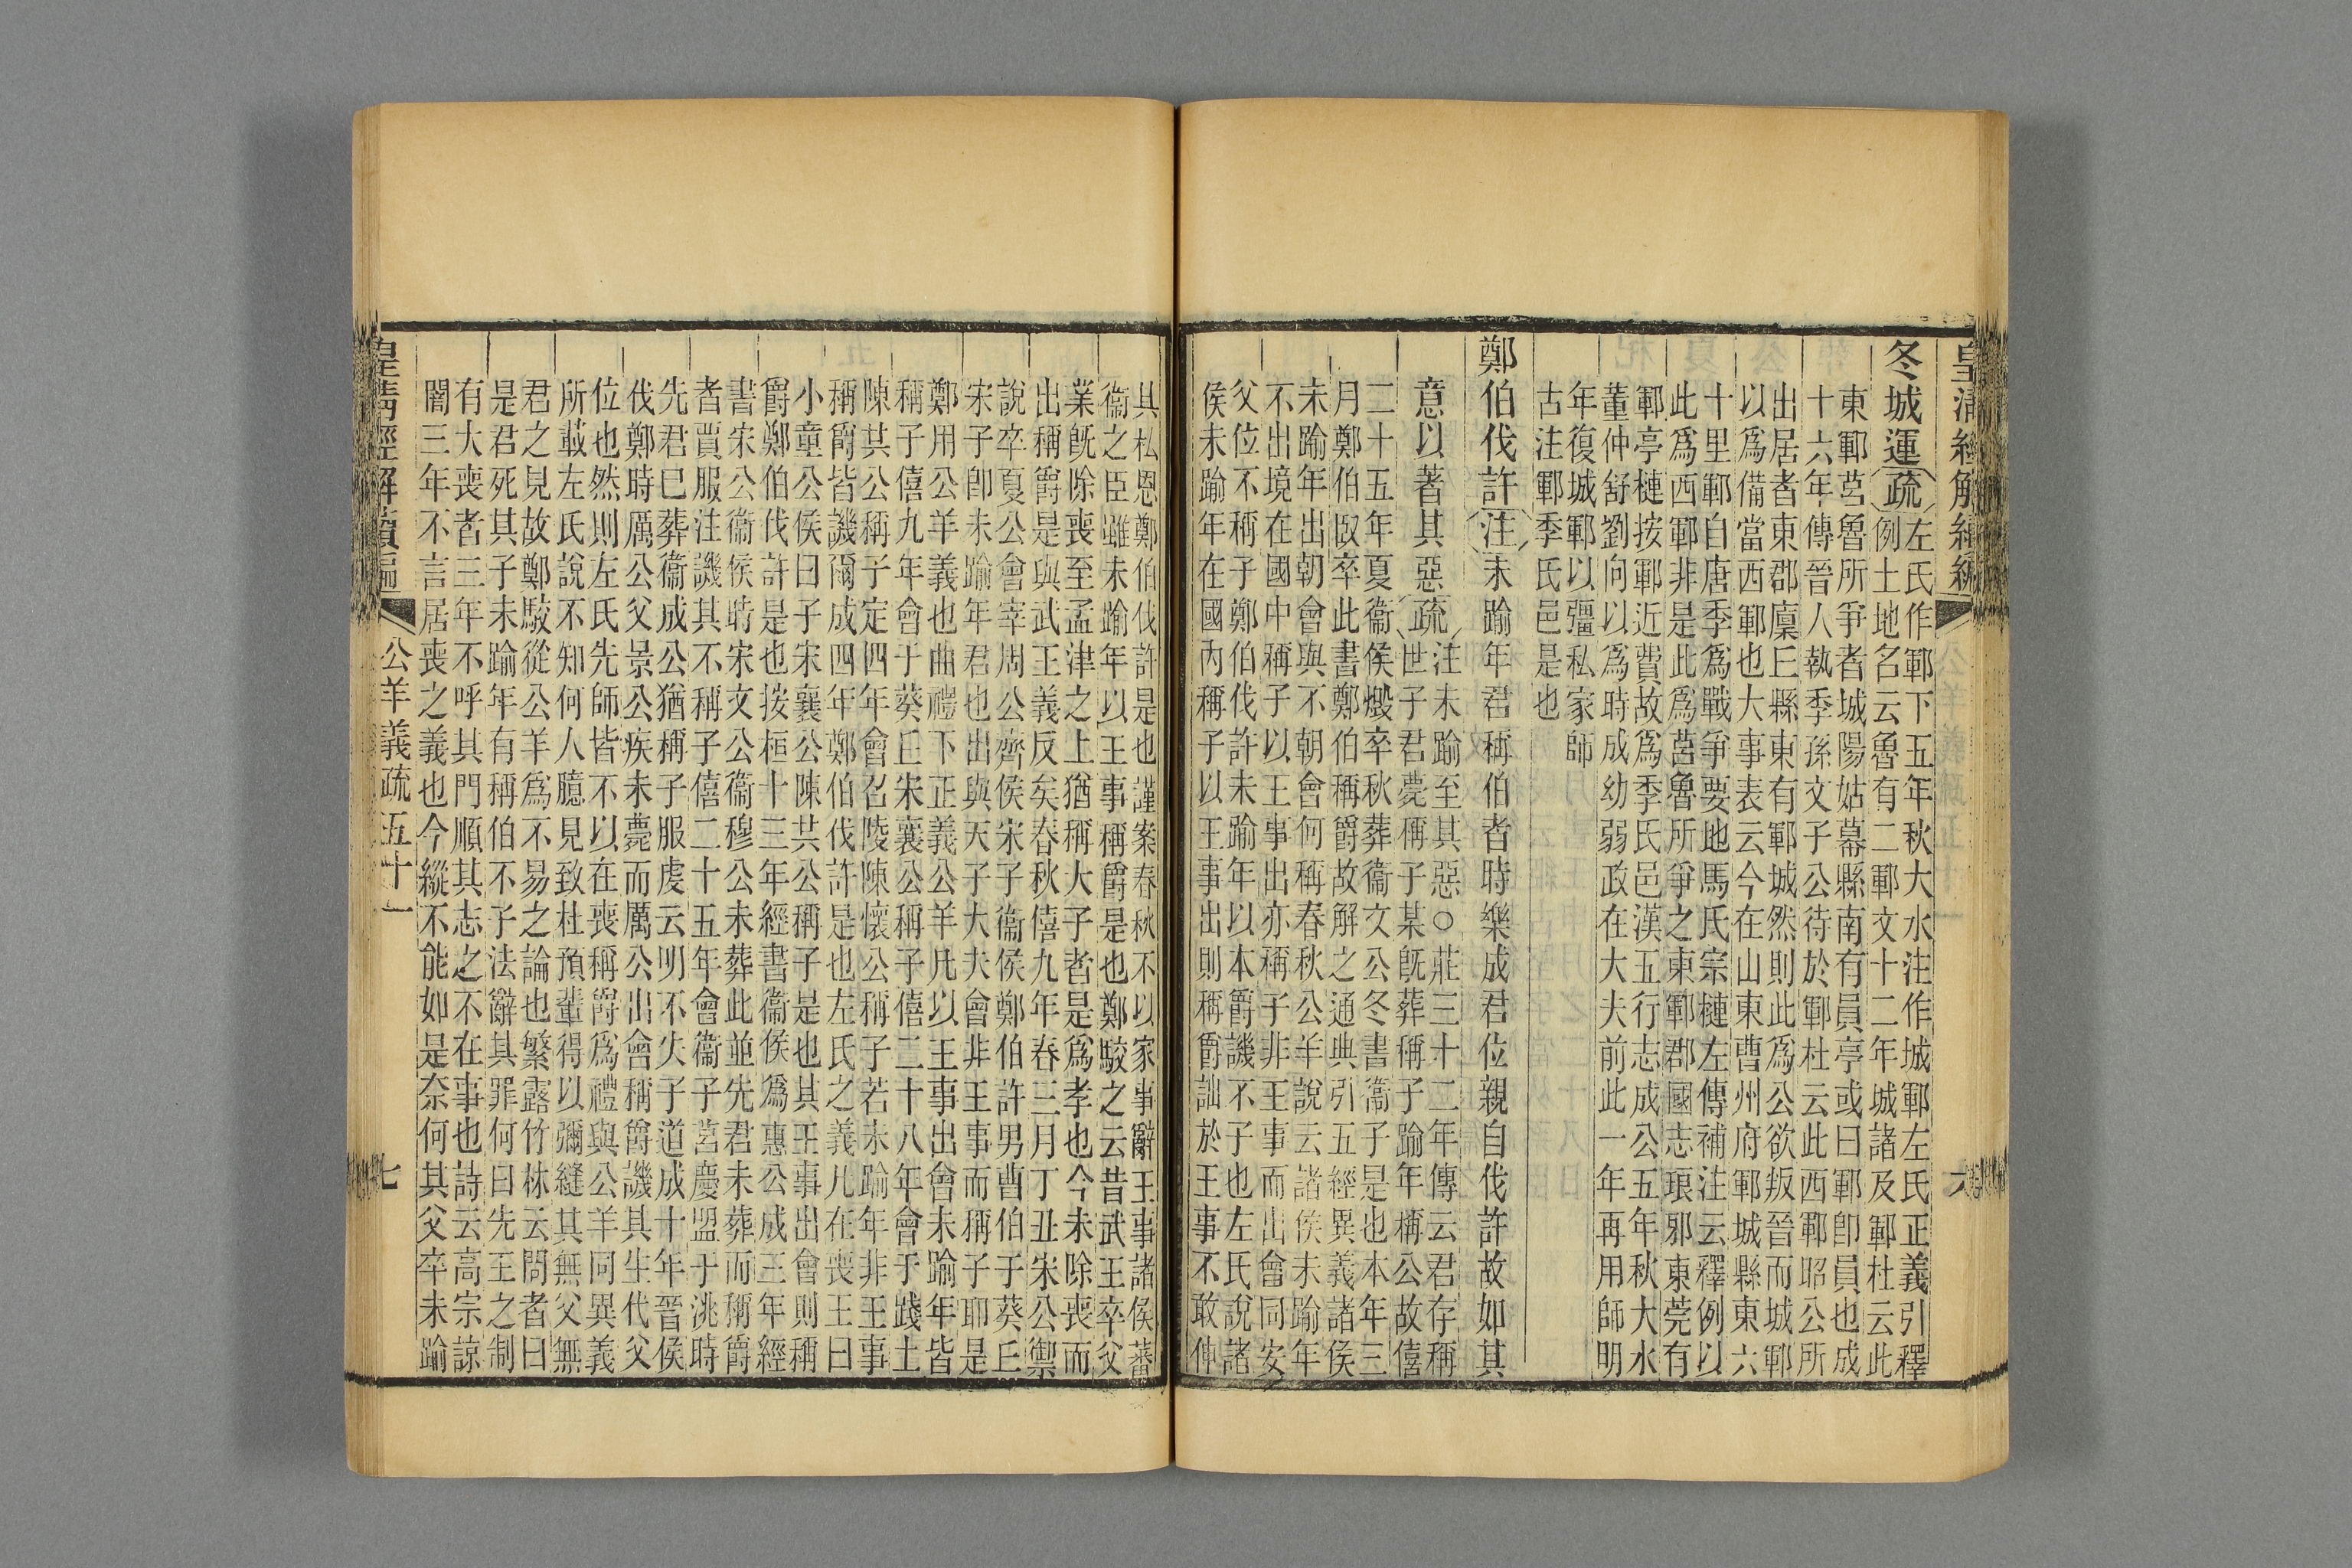 皇清經解續編
六
冬城運疏左氏作鄆下五年秋大水注作城鄆左氏正義引釋
例土地名云魯有二鄆文十二年城諸及鄆杜云此
東鄆莒魯所爭者城陽姑幕縣南有員亭或曰鄆卽員也成
十六年傳晉人執季孫文子公待於鄆杜云此西鄆昭公所
出居者東郡廩丘縣東有鄆城然則此爲公欲叛晉而城鄆
以爲備當西鄆也大事表云今在山東曹州府鄆城縣東六
十里鄆自唐季爲戰爭要地馬氏宗槤左傳補注云釋例以
此爲西鄆非是此爲莒魯所爭之東鄆郡國志琅邪東莞有
鄆亭槤按鄆近費故爲季氏邑漢五行志成公五年秋大水
董仲舒劉向以爲時成幼弱政在大夫前此一年再用師明
年復城鄆以彊私家師
古注鄆季氏邑是也
鄭伯伐許注未踰年君稱伯者時樂成君位親自伐許故如其
意以著其惡疏注未踰至其惡○莊三十二年傳云君存稱
世子君薨稱子某旣葬稱子踰年稱公故僖
二十五年夏衞侯燬卒秋葬衞文公冬書衞子是也本年三
月鄭伯臤卒此書鄭伯稱爵故解之通典引五經異義諸侯
未踰年出朝會與不朝會何稱春秋公羊說云諸侯未踰年
不出境在國中稱子以王事出亦稱子非王事而出會同安
父位不稱子鄭伯伐許未踰年以本爵譏不子也左氏說諸
侯未踰年在國內稱子以王事出則稱爵詘於王事不敢伸
其私恩鄭伯伐許是也謹案春秋不以家事辭王事諸侯蕃
衞之臣雖未踰年以王事稱爵是也鄭駮之云昔武王卒父
業旣除喪至孟津之上猶稱大子者是爲孝也今未除喪而
出稱爵是與武王義反矣春秋僖九年春三月丁丑宋公禦
說卒夏公會宰周公齊侯宋子衞侯鄭伯許男曹伯于葵丘
宋子卽未踰年君也出與天子大夫會非王事而稱子耶是
鄭用公羊義也曲禮下正義公羊凡以王事出會未踰年皆
稱子僖九年會于葵丘宋襄公稱子僖二十八年會于踐土
陳共公稱子定四年會召陵陳懷公稱子若未踰年非王事
稱爵皆譏爾成四年鄭伯伐許是也左氏之義凡在喪王曰
小童公侯曰子宋襄公陳共公稱子是也其王事出會則稱
爵鄭伯伐許是也按桓十三年經書衞侯爲惠公成三年經
書宋公衞侯時宋文公衞穆公未葬此並先君未葬而稱爵
者賈服注譏其不稱子僖二十五年會衞子莒慶盟于洮時
先君已葬衞成公猶稱子服虔云明不失子道成十年晉侯
伐鄭時厲公父景公疾未薨而厲公出會稱爵譏其生代父
位也然則左氏先師皆不以在喪稱爵爲禮與公羊同異義
所載左氏說不知何人臆見致杜預輩得以彌縫其無父無
君之見故鄭駮從公羊爲不易之論也繁露竹林云問者曰
是君死其子未踰年有稱伯不子法辭其罪何曰先王之制
有大喪者三年不呼其門順其志之不在事也詩云高宗諒
闇三年不言居喪之義也今縱不能如是奈何其父卒未踰
皇清經解續編
公羊義疏五十一
七